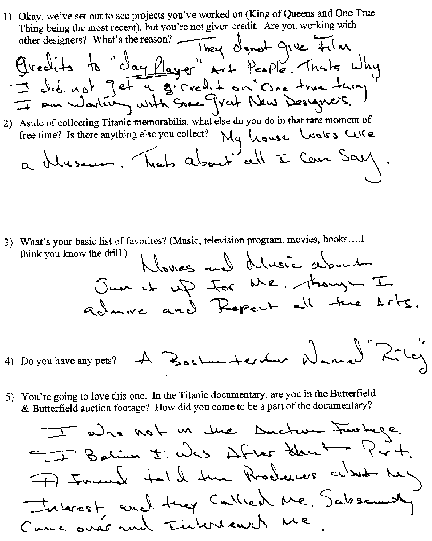 1) Okay, we've set out to see projects you've worked on (King of Queens and One True
Thing being the most recent), but you're not given credit. Are you working with
other designers? What's the reason? They do not give Film
Credits to "day Player" Art People. Thats Why
I did not get a credit on "One true thing"
I am working with Some Great New Designers.
2) Aside of collecting Titanic memorabilia, what else do you do in that rare moment of
free time? Is there anything else you collect? My house Looks Like
a Museum. Thats about all I Can Say.
3) What's your basic list of favorites? (Music, television program, movies, books....I
think you know the drill.)
Movies and Music about
Sum it up for Me. though I
admire and Respect all the Arts.
4) Do you have any pets? A Boston terrier Named "Riley"
5) You're going to love this one. In the Titanic documentary, are you in the Butterfield
& Butterfield auction footage? How did you come to be a part of the documentary?
I was not in the Auction Footage.
I Believe I was After that Part.
A Friend told the Producers about My
Interest, and they Called Me.
Came over and Interviewed Me.